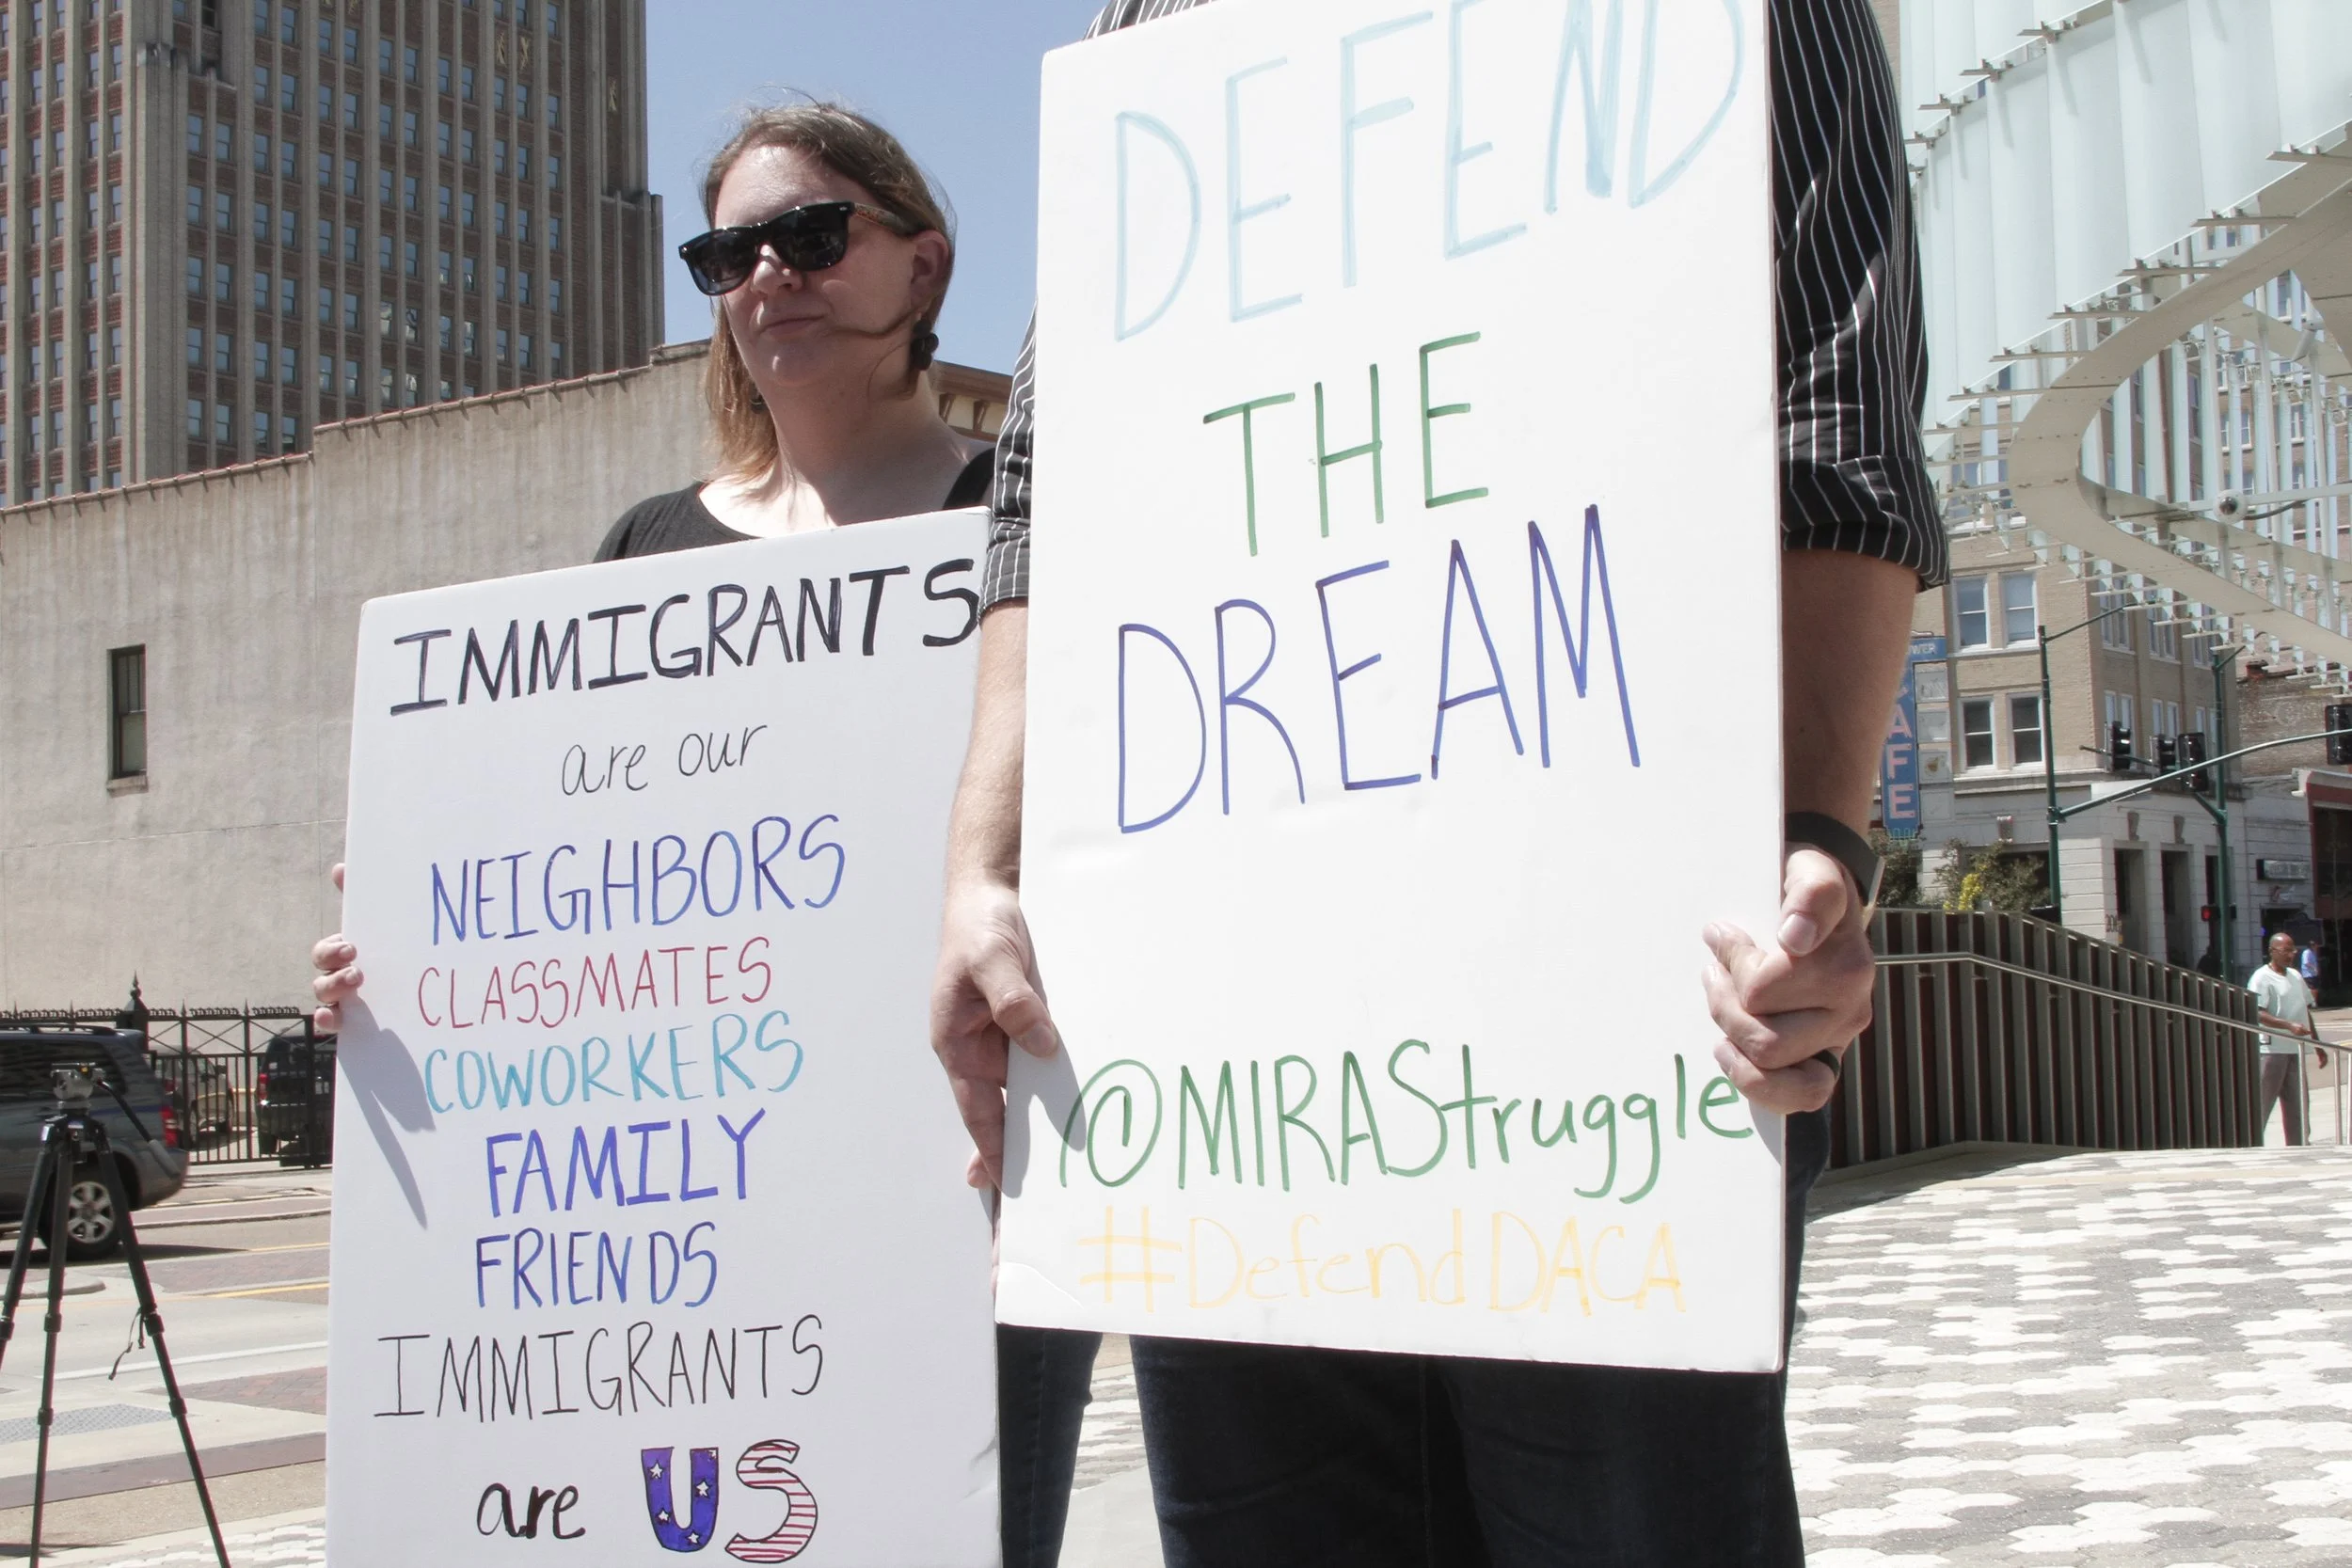 IMMIGRANTS
are our
NEIGHBORS
CLASSMATES
COWORKERS
FAMILY
FRIENDS
IMMIGRANTS
are US
DEFEND
THE
DREAM
@MIRAStruggle
#DefendDACA
CAFE